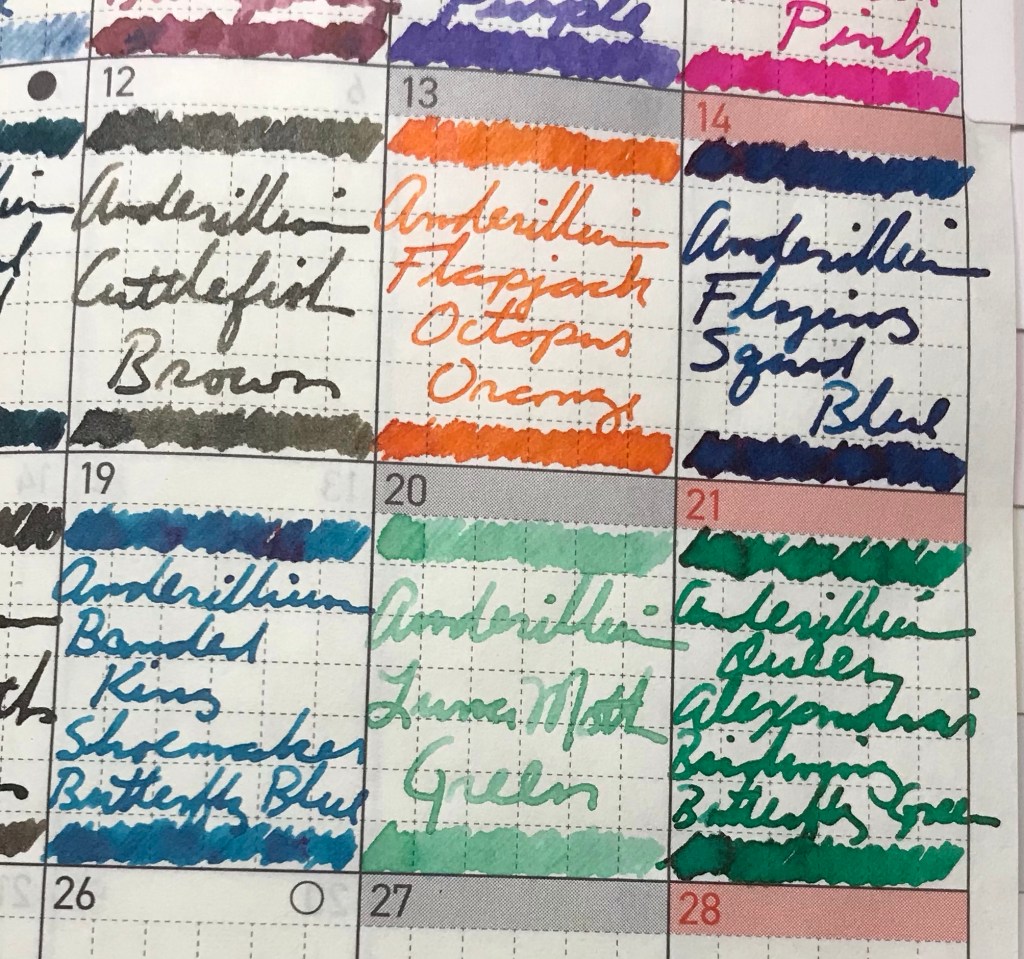 Purple
Pink
12
13
14
Anderillium
Cuttlefish
Brown
Anderillium
Flapjack
Octopus
Orange
Anderillium
Flying
Squid
Blue
19
20
21
Anderillium
Banded
King
Shoemaker
Butterfly Blue
Anderillium
Luna Moth
Green
Anderillium
Queen
Alexandra's
Birdwing
Butterfly Green
26
27
28